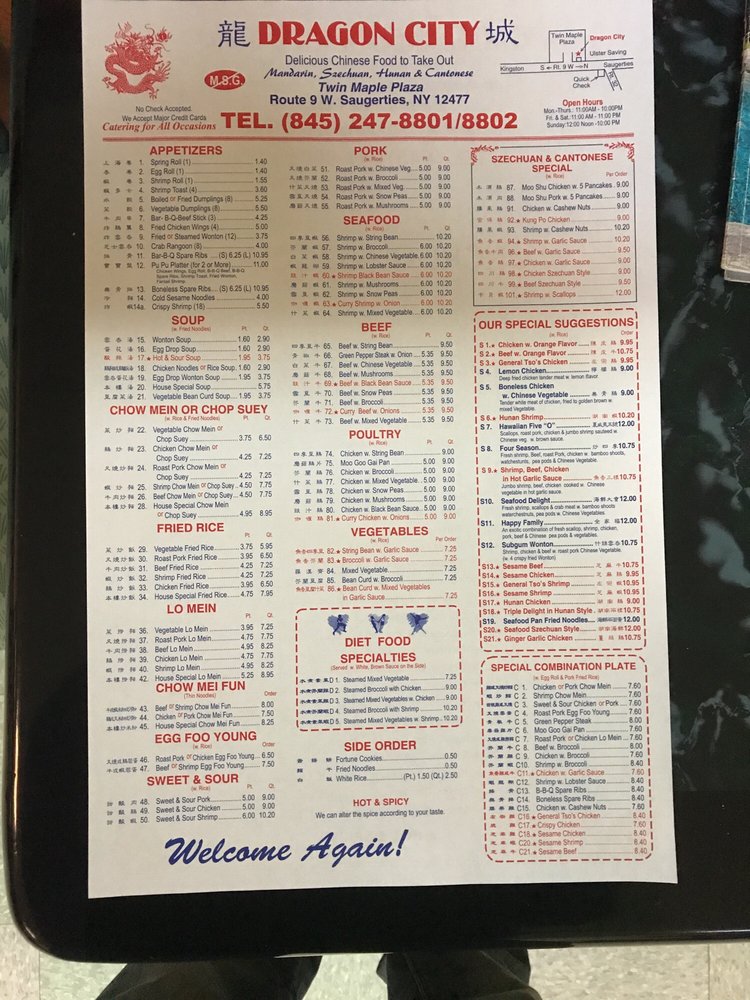 龍 DRAGON CITY 城
Delicious Chinese Food to Take Out
Mandarin, Szechuan, Hunan & Cantonese
M.S.G.
Twin Maple Plaza
Route 9 W. Saugerties, NY 12477
TEL. (845) 247-8801/8802
No Check Accepted.
We Accept Major Credit Cards
Catering for All Occasions
Twin Maple Plaza
Dragon City
Ulster Saving
Kingston S ← Rt. 9 W → N Saugerties
Quick Check
Open Hours
Mon.-Thurs.: 11:00AM - 10:00PM
Fri. & Sat.: 11:00 AM - 11:00 PM
Sunday: 12:00 Noon - 10:00 PM
APPETIZERS
上海卷 1. Spring Roll (1) 1.40
2. Egg Roll (1) 1.40
3. Shrimp Roll (1) 1.55
4. Shrimp Toast (4) 3.60
水餃 5. Boiled or Fried Dumplings (8) 5.25
菜餃 6. Vegetable Dumplings (8) 5.50
7. Bar-B-Q-Beef Stick (3) 4.25
8. Fried Chicken Wings (4) 5.00
9. Fried or Steamed Wonton (12) 3.75
10. Crab Rangoon (8) 4.00
11. Bar-B-Q Spare Ribs (S) 6.25 (L) 10.95
寶寶盤 12. Pu Pu Platter (for 2 or More) 11.00
Chicken Wings, Egg Roll, B-B-Q Beef, B-B-Q
Spare Ribs, Shrimp Toast, Fried Wonton,
Fantail Shrimp
13. Boneless Spare Ribs (S) 6.25 (L) 10.95
14. Cold Sesame Noodles 4.00
14a. Crispy Shrimp (18) 5.50
SOUP
(w. Fried Noodles)
Pt. Qt.
雲吞湯 15. Wonton Soup 1.60 2.90
蛋花湯 16. Egg Drop Soup 1.60 2.90
酸辣湯 17.★ Hot & Sour Soup 1.95 3.75
18. Chicken Noodles or Rice Soup 1.60 2.90
19. Egg Drop Wonton Soup 1.95 3.75
本樓湯 20. House Special Soup 5.75
豆腐菜湯 21. Vegetable Bean Curd Soup 1.95 3.75
CHOW MEIN OR CHOP SUEY
(w. Rice & Fried Noodles)
Pt. Qt.
22. Vegetable Chow Mein or
Chop Suey 3.75 6.50
23. Chicken Chow Mein or
Chop Suey 4.25 7.25
24. Roast Pork Chow Mein or
Chop Suey 4.25 7.25
25. Shrimp Chow Mein or Chop Suey 4.50 7.75
26. Beef Chow Mein or Chop Suey 4.50 7.75
28. House Special Chow Mein or
Chop Suey 4.95 8.95
FRIED RICE
Pt. Qt.
菜炒飯 29. Vegetable Fried Rice 3.75 5.95
叉燒炒飯 30. Roast Pork Fried Rice 3.95 6.50
牛肉炒飯 31. Beef Fried Rice 4.25 7.25
蝦炒飯 32. Shrimp Fried Rice 4.25 7.25
雞炒飯 33. Chicken Fried Rice 3.95 6.50
本樓炒飯 34. House Special Fried Rice 4.75 7.95
LO MEIN
Pt. Qt.
菜撈麵 36. Vegetable Lo Mein 3.95 7.25
叉燒撈麵 37. Roast Pork Lo Mein 4.75 7.75
牛肉撈麵 38. Beef Lo Mein 4.95 8.25
雞撈麵 39. Chicken Lo Mein 4.75 7.75
蝦撈麵 40. Shrimp Lo Mein 4.95 8.25
本樓撈麵 42. House Special Lo Mein 5.25 8.25
CHOW MEI FUN
(Thin Noodles)
Order
43. Beef or Shrimp Chow Mei Fun 8.00
44. Chicken or Pork Chow Mei Fun 7.50
45. House Special Chow Mei Fun 8.25
EGG FOO YOUNG
(w. Rice)
Order
46. Roast Pork or Chicken Egg Foo Young 6.50
47. Beef or Shrimp Egg Foo Young 7.50
SWEET & SOUR
(w. Rice)
Pt. Qt.
甜酸肉 48. Sweet & Sour Pork 5.00 9.00
甜酸雞 49. Sweet & Sour Chicken 5.00 9.00
甜酸蝦 50. Sweet & Sour Shrimp 6.00 10.20
PORK
(w. Rice)
Pt. Qt.
叉燒白菜 51. Roast Pork w. Chinese Veg. 5.00 9.00
叉燒芥蘭 52. Roast Pork w. Broccoli 5.00 9.00
什菜叉燒 53. Roast Pork w. Mixed Veg. 5.00 9.00
雪豆叉燒 54. Roast Pork w. Snow Peas 5.00 9.00
蘑菇叉燒 55. Roast Pork w. Mushrooms 5.00 9.00
SEAFOOD
(w. Rice)
Pt. Qt.
四季豆蝦 56. Shrimp w. String Bean 10.20
芥蘭蝦 57. Shrimp w. Broccoli 6.00 10.20
白菜蝦 58. Shrimp w. Chinese Vegetable 6.00 10.20
蝦龍糊 59. Shrimp w. Lobster Sauce 6.00 10.20
豉汁蝦 60.★ Shrimp Black Bean Sauce 6.00 10.20
蘑菇蝦 61. Shrimp w. Mushrooms 6.00 10.20
雪豆蝦 62. Shrimp w. Snow Peas 6.00 10.20
咖喱蝦 63.★ Curry Shrimp w. Onion 6.00 10.20
什菜蝦 64. Shrimp w. Mixed Vegetable 6.00 10.20
BEEF
(w. Rice)
Pt. Qt.
四季豆牛 65. Beef w. String Bean 9.50
青椒牛 66. Green Pepper Steak w. Onion 5.35 9.50
白菜牛 67. Beef w. Chinese Vegetable 5.35 9.50
蘑菇牛 68. Beef w. Mushrooms 5.35 9.50
豉汁牛 69.★ Beef w. Black Bean Sauce 5.35 9.50
雪豆牛 70. Beef w. Snow Peas 5.35 9.50
芥蘭牛 71. Beef w. Broccoli 5.35 9.50
咖喱牛 72.★ Curry Beef w. Onions 5.35 9.50
什菜牛 73. Beef w. Mixed Vegetable 5.35 9.50
POULTRY
(w. Rice)
Pt. Qt.
四季豆雞 74. Chicken w. String Bean 9.00
蘑菇雞片 75. Moo Goo Gai Pan 5.00 9.00
芥蘭雞 76. Chicken w. Broccoli 5.00 9.00
什菜雞 77. Chicken w. Mixed Vegetable 5.00 9.00
雪豆雞 78. Chicken w. Snow Peas 5.00 9.00
蘑菇雞 79. Chicken w. Mushrooms 5.00 9.00
豉汁雞 80. Chicken w. Black Bean Sauce 5.00 9.00
咖喱雞 81.★ Curry Chicken w. Onions 5.00 9.00
VEGETABLES
(w. Rice)
Per Order
魚香四季豆 82.★ String Bean w. Garlic Sauce 7.25
魚香芥蘭 83.★ Broccoli w. Garlic Sauce 7.25
羅漢齋 84. Mixed Vegetable 7.25
芥蘭豆腐 85. Bean Curd w. Broccoli 7.25
86.★ Bean Curd w. Mixed Vegetables
in Garlic Sauce 7.25
DIET FOOD
SPECIALTIES
(Served w. White, Brown Sauce on the Side)
水煮素菜 D 1. Steamed Mixed Vegetable 7.25
水煮芥蘭雞 D 2. Steamed Broccoli with Chicken 9.00
水煮素菜雞 D 3. Steamed Mixed Vegetables w. Chicken 9.00
水煮芥蘭蝦 D 4. Steamed Broccoli with Shrimp 10.20
水煮素菜蝦 D 5. Steamed Mixed Vegetables w. Shrimp 10.20
SIDE ORDER
Fortune Cookies 0.50
Fried Noodles 0.50
白飯 White Rice (Pt.) 1.50 (Qt.) 2.50
HOT & SPICY
We can alter the spice according to your taste.
Welcome Again!
SZECHUAN & CANTONESE
SPECIAL
(w. Rice)
Per Order
木須雞 87. Moo Shu Chicken w. 5 Pancakes 9.00
木須肉 88. Moo Shu Pork w. 5 Pancakes 9.00
腰果雞 91. Chicken w. Cashew Nuts 9.00
宮保雞 92.★ Kung Po Chicken 9.00
腰果蝦 93. Shrimp w. Cashew Nuts 10.20
魚香蝦 94.★ Shrimp w. Garlic Sauce 10.20
魚香牛 96.★ Beef w. Garlic Sauce 9.50
魚香雞 97.★ Chicken w. Garlic Sauce 9.00
四川雞 98.★ Chicken Szechuan Style 9.00
四川牛 99.★ Beef Szechuan Style 9.50
101.★ Shrimp w. Scallops 12.00
OUR SPECIAL SUGGESTIONS
(w. Rice)
Order
S 1.★ Chicken w. Orange Flavor 陳皮雞 9.95
S 2.★ Beef w. Orange Flavor 陳皮牛 10.75
S 3.★ General Tso's Chicken 左宗雞 9.95
S 4. Lemon Chicken 檸檬雞 9.00
Deep fried chicken tender meat w. lemon flavor.
S 5. Boneless Chicken
w. Chinese Vegetable 無骨雞 9.00
Tender white meat of chicken, fried to golden brown w.
mixed Vegetable.
S 6.★ Hunan Shrimp 湖南蝦 10.20
S 7. Hawaiian Five "O" 12.75
Scallops, roast pork, chicken & jumbo shrimp sauteed w.
Chinese veg. w. brown sauce.
S 8. Four Season 炒四季 10.75
Fresh shrimp, Beef, roast Pork, chicken w. bamboo shoots,
watchestunts, pea pods & Chinese Vegetable.
S 9.★ Shrimp, Beef, Chicken
in Hot Garlic Sauce 魚香三樣 10.75
Jumbo shrimp, beef, chicken. cooked w. Chinese
vegetable in hot garlic sauce.
S10. Seafood Delight 海鮮大會 12.00
Fresh shrimp, scallops & crab meat w. bamboo shoots
waterchestnuts, pea pods w. Chinese Vegetables.
S11. Happy Family 全家福 12.00
An exotic combination of fresh scallop, shrimp, chicken,
pork, beef & Chinese pea pods & vegetables.
S12. Subgum Wonton 什錦雲吞 10.75
Shrimp, chicken & beef w. roast pork Chinese Vegetable.
(w. 4 crispy fried Wonton)
S13.★ Sesame Beef 芝麻牛 10.75
S14.★ Sesame Chicken 芝麻雞 9.95
S15.★ General Tso's Shrimp 左宗蝦 10.75
S16.★ Sesame Shrimp 芝麻蝦 10.75
S17.★ Hunan Chicken 湖南雞 9.00
S18.★ Triple Delight in Hunan Style 湖南三樣 10.75
S19. Seafood Pan Fried Noodles 12.00
S20.★ Seafood Szechuan Style 四川海鮮 12.00
S21.★ Ginger Garlic Chicken 10.75
SPECIAL COMBINATION PLATE
(w. Egg Roll & Pork Fried Rice)
C 1. Chicken or Pork Chow Mein 7.60
蝦炒麵 C 2. Shrimp Chow Mein 7.60
C 3. Sweet & Sour Chicken or Pork 7.60
C 4. Roast Pork Egg Foo Young 7.60
青椒牛 C 5. Green Pepper Steak 8.00
蘑菇雞片 C 6. Moo Goo Gai Pan 7.60
C 7. Roast Pork or Chicken Lo Mein 7.60
芥蘭牛 C 8. Beef w. Broccoli 8.00
芥蘭雞 C 9. Chicken w. Broccoli 7.60
芥蘭蝦 C10. Shrimp w. Broccoli 8.40
C11.★ Chicken w. Garlic Sauce 7.60
蝦龍糊 C12. Shrimp w. Lobster Sauce 8.40
C13. B-B-Q Spare Ribs 8.40
C14. Boneless Spare Ribs 8.40
腰果雞 C15. Chicken w. Cashew Nuts 7.60
左宗雞 C16.★ General Tso's Chicken 8.40
C17.★ Crispy Chicken 8.40
芝麻雞 C18.★ Sesame Chicken 8.40
芝麻蝦 C20.★ Sesame Shrimp 8.40
芝麻牛 C21.★ Sesame Beef 8.40